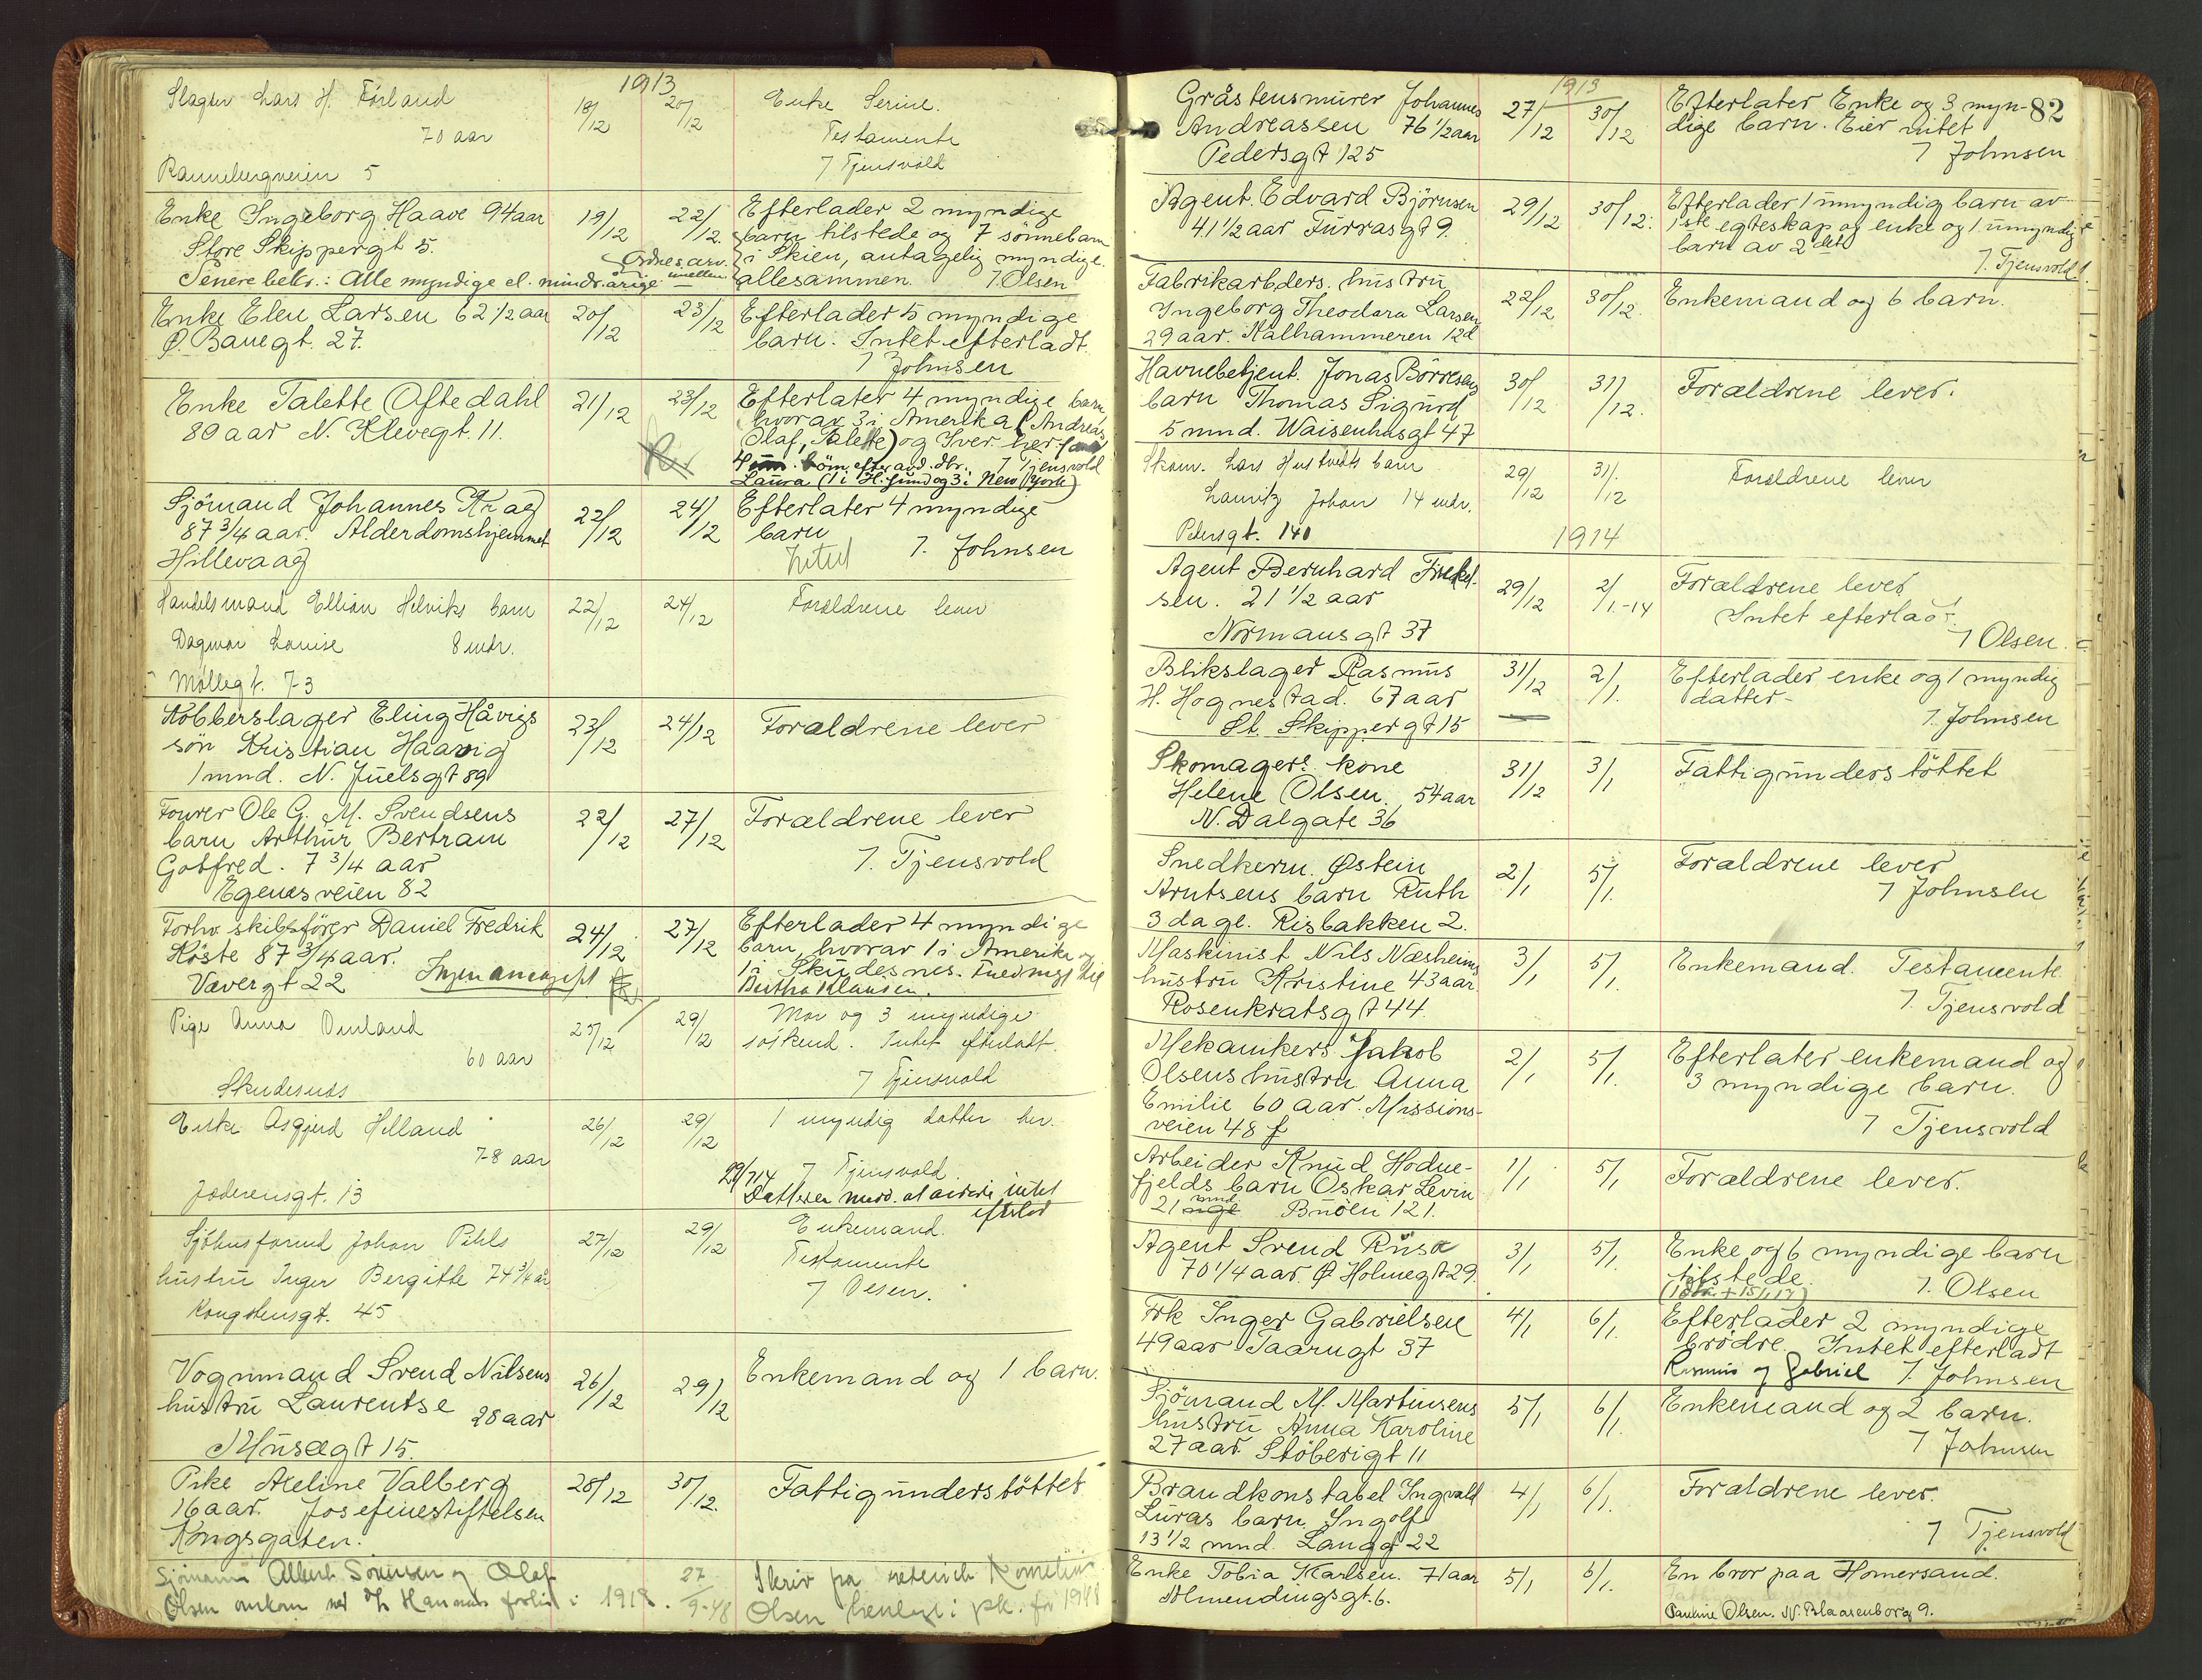 1913
Slagter Lars H. Förland
70 aar
Rannebergveien 5
18/12
20/12
Enke Serine.
Testamente
7 Tjensvold
Enke Ingeborg Haave 94 aar
Store Skippergt 5.
Senere bekr.: Alle myndige el. mindreårige
19/12
22/12.
Efterlader 2 myndige
barn tilstede og 7 sönnebarn
i Skien, antagelig myndige
allesammen. 7 Olsen
Ordnes arv.
imellem
Enke Elen Larsen 62 1/2 aar
Ø. Banegt. 27.
20/12
23/12
Efterlader 5 myndige
barn. Intet efterladt.
7 Johnsen
Enke Talette Oftedahl
80 aar N. Klevegt. 11.
21/12
23/12
Efterlater 4 myndige barn,
hvorav 3 i Amerika (Andreas
Olaf, Talette) og Iver her
4 börn efter avd. dtr. 7 Tjensvold
Laura (1 i H.sund og 3 i New York)
Sjömand Johannes Krag
87 3/4 aar. Alderdomshjemmet
Hillevaag
22/12
24/12
Efterlater 4 myndige
barn
Intet 7. Johnsen
Handelsmand Ellion Helviks barn
Dagmar Louise 8 mdr.
Möllegt. 73
22/12
24/12
Forældrene lever
Kobberslager Eling Håvigs
sön Kristian Haavig
1 mnd. N. Juelsgt 89
23/12
24/12
Forældrene lever
Fourer Ole G. M. Svendsens
barn Arthur Bertram
Gotfred. 7 3/4 aar
Egenæsveien 82
22/12
27/12
Forældrene lever
7. Tjensvold
Forhv. skibsförer Daniel Fredrik
Höste 87 3/4 aar.
Vævergt 22
24/12
27/12
Efterlader 4 myndige
barn, hvorav 1 i Amerika og
1 i Skudesnes.
Bertha Klausen.
Pige Anna Omland
60 aar
Skudesnes
25/12
29/12
Mor og 3 myndige
söskend. Intet efterladt.
7 Tjensvold
Enke Asgjerd Helland
78 aar
Jæderensgt. 13
26/12
29/12
1 myndig datter her.
7 Tjensvold.
29/7 14
Datteren medd. at avdøde intet
efterlod
Sjöhusformd Johan Pihls
hustru Inger Bergitte 74 3/4 år
Kongstensgt. 45
27/12
29/12
Enkemand.
Testamente
7 Olsen.
Vognmand Svend Nilsens
hustru Laurentse 28 aar
Musægt 15.
26/12
29/12
Enkemand og 1 barn.
Pike Akeline Valberg
16 aar. Josefinestiftelsen
Kongsgaten.
28/12
30/12.
Fattigunderstöttet
Sjömann Albert Sörensen og Olaf
Olsen omkom med Hannas forlis i 1918.
27/9-48
Skriv fra
Olsen henlagt i pk. for 1948
82
1913
Gråstensmurer Johannes
Andreassen 76 1/2 aar
Pedersgt 125
27/12
30/12
Efterlater Enke og 3 myn-
dige barn. Eier intet
7 Johnsen
Agent. Edvard Björnsen
41 1/2 aar Furrasgt 9.
29/12
30/12.
Efterlader 1 umyndig barn av
1ste egteskap og enke og 1 umyndig
barn av 2det
7. Tjensvold
Fabrikarbders. hustru
Ingeborg Theodora Larsen
29 aar. Kalhammeren 12d
22/12
30/12.
Enkemand og 6 barn.
Havnebetjent. Jonas Börresens
barn Thomas Sigurd
5 mnd. Waisenhusgt 47
30/12
31/12.
Forældrene lever.
Skom. Lars Hustvedts barn
Lauritz Johan 14 mdr.
Pedersgt. 140
29/12
31/12
Forældrene lever
1914
Agent Bernhard
sen. 21 1/2 aar
Normansgt 37
29/12
2/1.-14
Forældrene lever
Intet efterladt.
7 Olsen.
Blikslager Rasmus
H. Hognestad. 67 aar
St. Skippergt 15
31/12
2/1.
Efterlader enke og 1 myndig
datter-
7. Johnsen
Skomagers. kone
Helene Olsen. 54 aar
N. Dalgate 36
31/12
3/1
Fattigunderstöttet
Snedkerm. Østein
Knutsens barn Ruth
3 dage. Risbakken 2.
2/1
5/1.
Forældrene lever
7 Johnsen
Maskinist Nils Næsheims
hustru Kristine 43 aar.
Rosenkratsgt 44
3/1
5/1.
Enkemand. Testamente
7. Tjensvold
Mekanikers Jakob
Olsens hustru Anna
Emilie 60 aar. Missions-
veien 48 f
2/1
5/1.
Efterlater enkemand og
3 myndige barn.
7 Tjensvold
Arbeider Knud Hodne-
fjelds barn Oskar Levin
21 mnd Buöen 121.
1/1
5/1
Forældrene lever.
Agent Svend Rusa
70 1/4 aar. Ø Holmegt 29.
3/1
5/1.
Enke og 6 myndige barn
tilstede.
7. Olsen
Frk Inger Gabrielsen
49 aar Taarngt 37
4/1
6/1.
Efterlader 2 myndige
brödre. Intet efterladt
Rasmus og Gabriel 7. Johnsen
Sjömand M. Martinsens
hustru Anna Karoline
27 aar. Stöberigt 11
5/1
6/1.
Enkemand og 2 barn.
7 Johnsen
Brandkonstabel Ingvald
Luras barn Ingolf
13 1/2 mnd. Langg 22
4/1
6/1.
Forældrene lever.
7 Tjensvold
Enke Tobia Karlsen. 71 aar
Almendingsgt. 6.
5/1
6/1.
En bror paa Homersand.
Pauline Olsen. N. Blaasenborg 9.